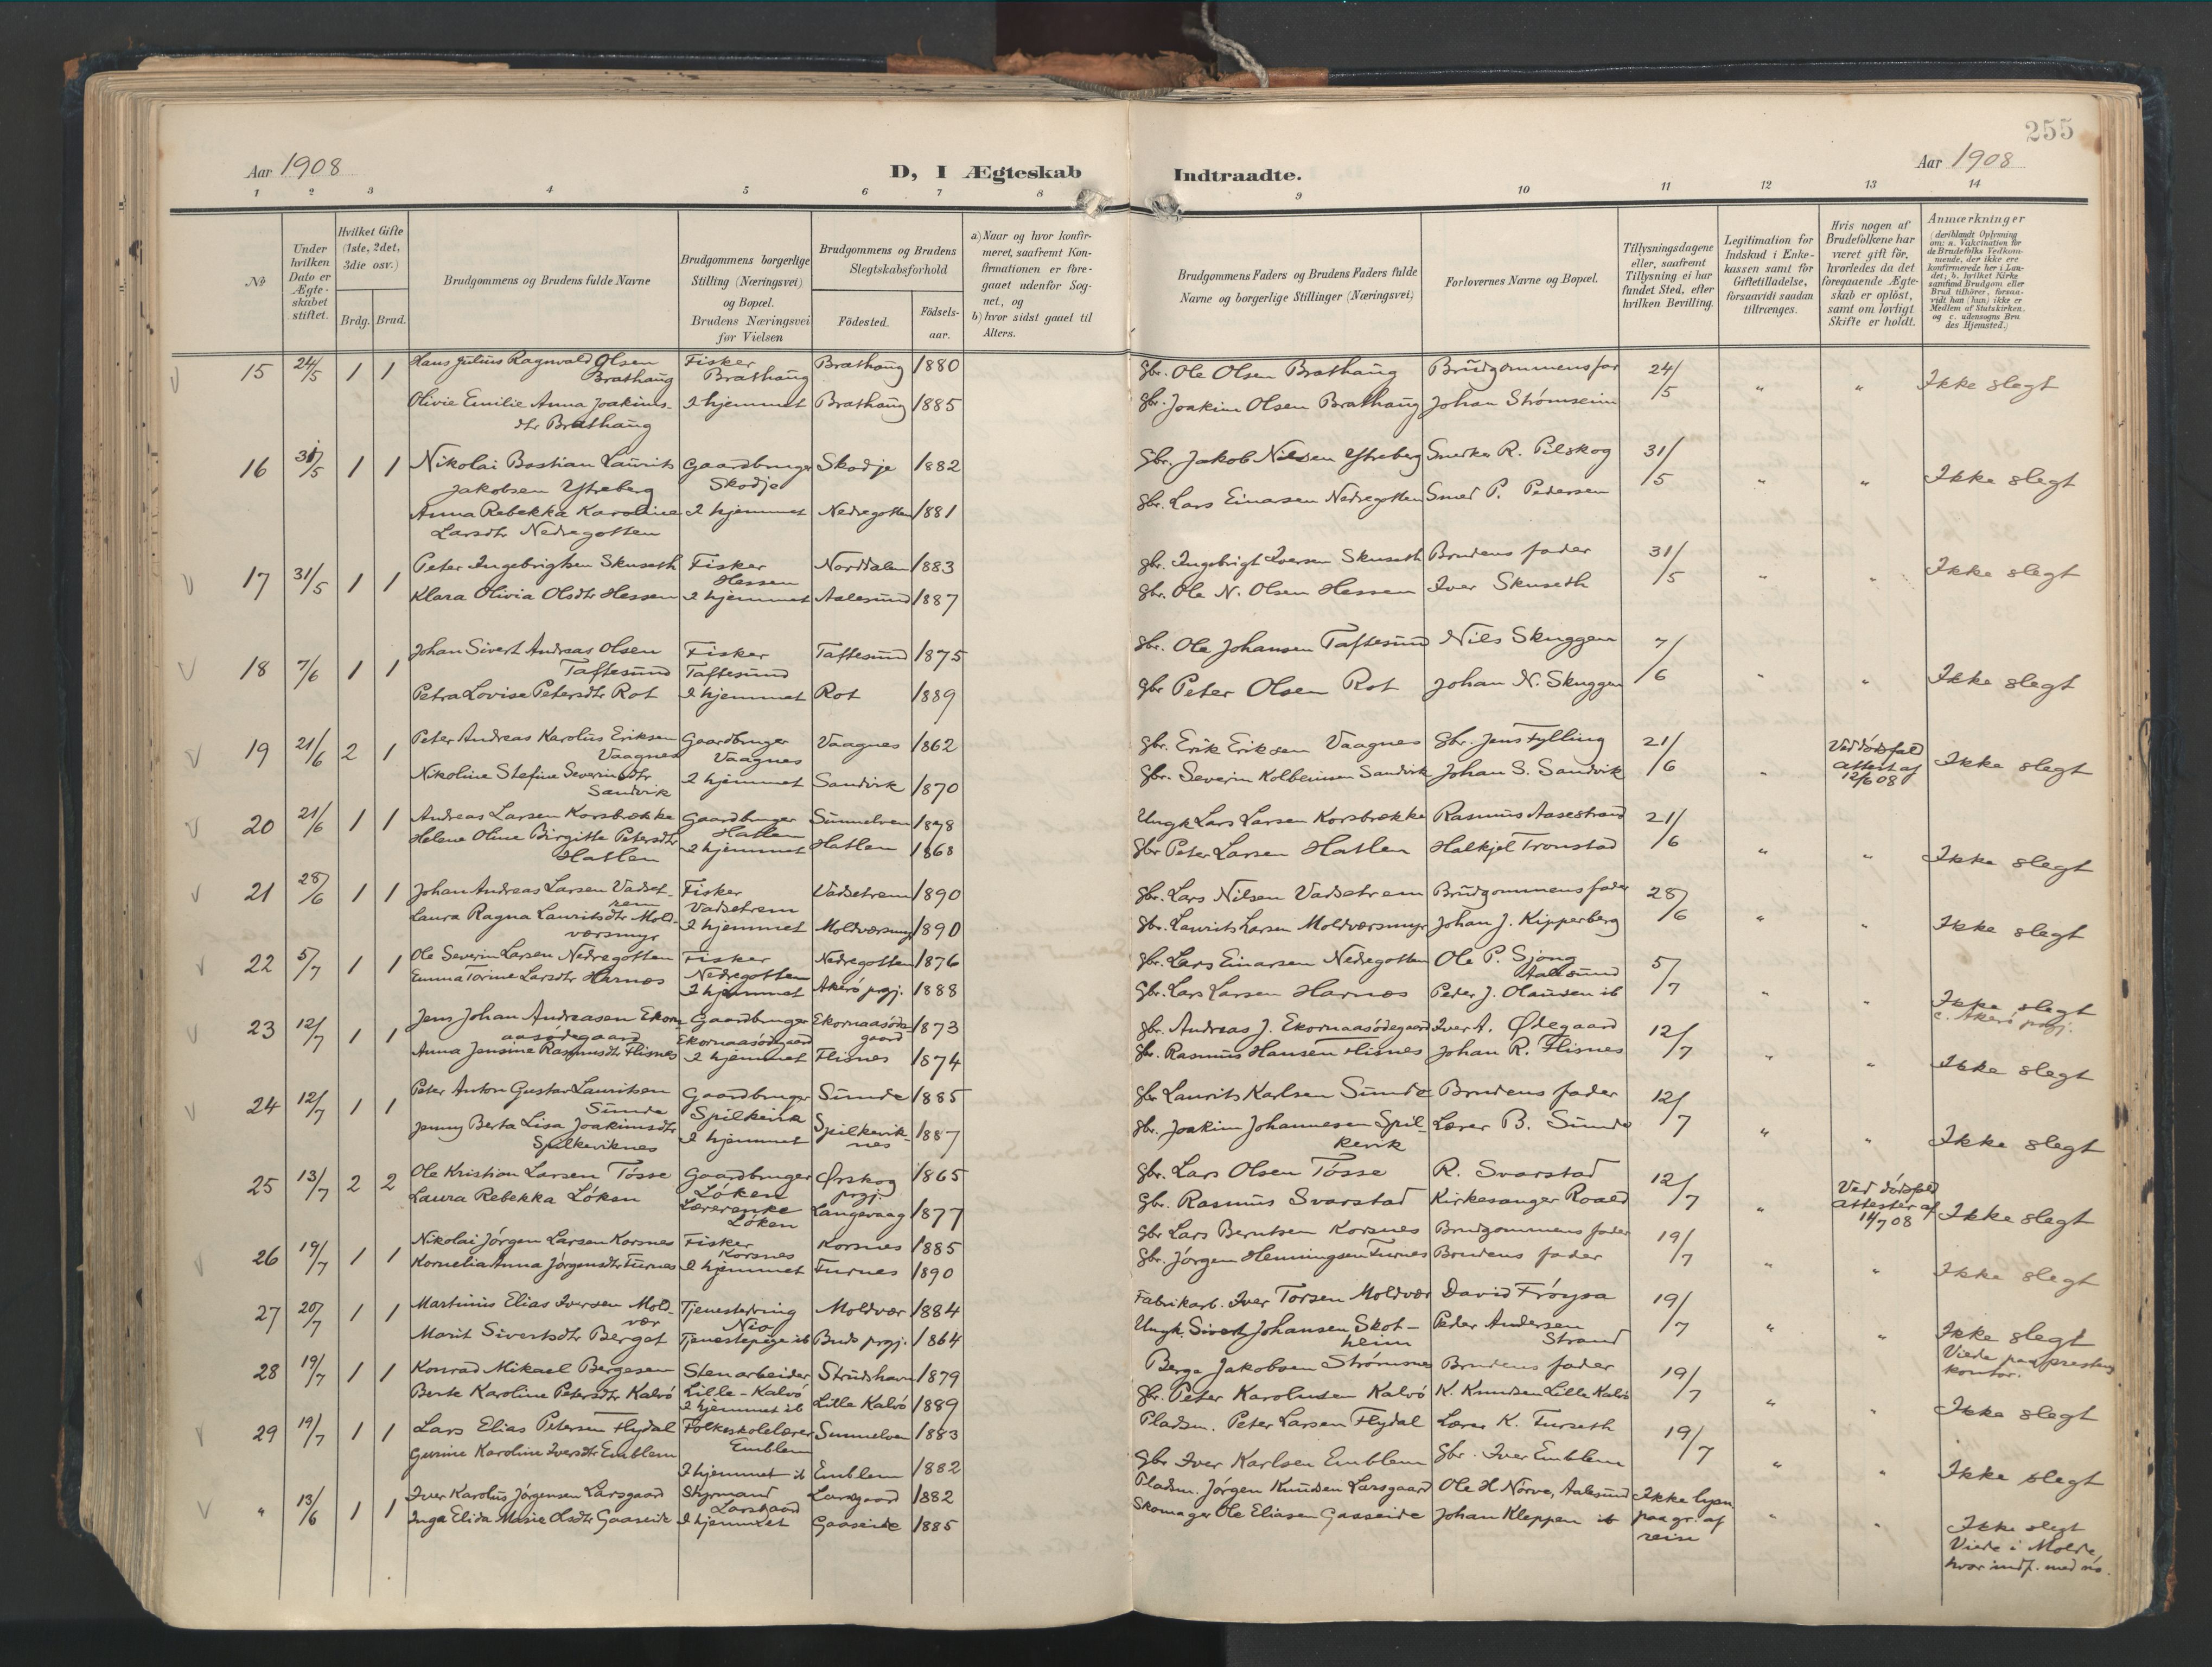 255
Aar 1908
D, I Ægteskab Indtraadte.
Aar 1908
1 2 3 4 5 6 7 8 9 10 11 12 13 14
No
Under hvilken Dato er Ægteskabet stiftet.
Hvilket Gifte (1ste, 2det, 3die osv.)
Brdg. Brud.
Brudgommens og Brudens fulde Navne
Brudgommens borgerlige Stilling (Næringsvei) og Bopæl. Brudens Næringsvei før Vielsen
Brudgommens og Brudens Slegtskabsforhold
Födested. Födselsaar.
a) Naar og hvor konfirmeret, saafremt Konfirmationen er foregaaet udenfor Sognet, og
b) hvor sidst gaaet til Alters.
Brudgommens Faders og Brudens Faders fulde Navne og borgerlige Stillinger (Næringsvei)
Forlovernes Navne og Bopæl.
Tillysningsdagene eller, saafremt Tillysning ei har fundet Sted, efter hvilken Bevilling.
Legitimation for Indskud i Enkekassen samt for Giftetilladelse, forsaavidt saadan tiltrænges.
Hvis nogen af Brudefolkene har været gift før, hvorledes da det foregaaende Ægteskab er oplöst, samt om lovligt Skifte er holdt.
Anmærkninger
(deriblandt Oplysning om: a. Vakcination for de Brudefolks Vedkommende, der ikke ere konfirmerede her i Landet; b. hvilket Kirkesamfund Brudgom eller Brud tilhörer, forsaavidt han (hun) ikke er Medlem af Statskirken, og c. udensogns Brudes Hjemsted.)
15 24/5 1 1 Hans Julius Ragnvald Olsen Brathaug Fisker Brathaug Brathaug 1880 Gbr. Ole Olsen Brathaug Brudgommens far 24/5 " " Ikke slegt
Olivie Emilie Anna Joakimsdtr Brathaug I hjemmet Brathaug 1885 Gbr. Joakim Olsen Brathaug Johan Strømseim
16 31/5 1 1 Nikolai Bastian Laurits Jakobsen Ytreberg Gaardbruger Skodje Skodje 1882 Gbr. Jakob Nilsen Ytreberg R. Pilskog 31/5 " " Ikke slegt
Anna Rebekka Karoline Larsdtr Nedregotten I hjemmet Nedregotten 1881 Gbr. Lars Einarsen Nedregotten Smed P. Pedersen
17 31/5 1 1 Peter Ingebrigtsen Skuseth Fisker Hessen Norddalen 1883 Gbr. Ingebrigt Iversen Skuseth Brudens fader 31/5 " " Ikke slegt
Klara Olivia Olsdtr Hessen I hjemmet Aalesund 1887 Gbr. Ole N. Olsen Hessen Iver Skuseth
18 7/6 1 1 Johan Sivert Andreas Olsen Taftesund Fisker Taftesund Taftesund 1875 Gbr. Ole Johansen Taftesund Nils Skuggen 7/6 " " Ikke slegt
Petra Lovise Petersdtr Rot I hjemmet Rot 1889 Gbr Peter Olsen Rot Johan N. Skuggen
19 21/6 2 1 Peter Andreas Karolus Eriksen Vaagnes Gaardbruger Vaagnes Vaagnes 1862 Gbr. Erik Eriksen Vaagnes Gbr. Jens Fylling 21/6 " Ved dødsfald attest af 12/6 08 Ikke slegt
Nikoline Stefine Severinsdtr Sandvik I hjemmet Sandvik 1870 Gbr. Severin Kolbeinsen Sandvik Johan S. Sandvik
20 21/6 1 1 Andreas Larsen Korsbrekke Gaardbruger Hatlen Sunnelven Ungk Lars Larsen Korsbrekke Rasmus Aasestrand 21/6 " " Ikke slegt
Helene Oline Birgitte Petersdtr Hatlen I hjemmet Hatlen 1868 Gbr Peter Larsen Hatlen Halkjel Tronstad
21 28/6 1 1 Johan Andreas Larsen Vadsetrem Fisker Vadsetrem Vadsetrem 1890 Gbr. Lars Nilsen Vadsetrem Brudgommens fader 28/6 " " Ikke slegt
Laura Ragna Lauritsdtr Moldværsmyr I hjemmet Moldværsmyr 1890 Gbr. Laurits Larsen Moldværsmyr Johan J. Kipperberg
22 5/7 1 1 Ole Severin Larsen Nedregotten Fisker Nedregotten Nedregotten 1876 Gbr. Lars Einarsen Nedregotten Ole P. Sjong Aalesund 5/7 " " Ikke slegt
Emma Torine Larsdtr Harnæs I hjemmet Akerö prgj. 1888 Gbr. Lars Larsen Harnæs Peder J. Olausen ib c. Akerö prgj.
23 12/7 1 1 Jens Johan Andreasen Ekornaasødegaard Gaardbruger Ekornaasødegaard Ekornaasødegaard 1873 Gbr. Andreas J. Ekornaasødegaard Iver A. Ødegaard 12/7 " " Ikke slegt
Anna Jensine Rasmusdtr Flisnes I hjemmet Flisnes 1874 Gbr. Rasmus Hansen Flisnes Johan R. Flisnes
24 12/7 1 1 Peter Anton Gustav Lauritsen Sunde Gaardbruger Spilkevik Sunde 1885 Gbr Laurits Karlsen Sunde Brudens fader 12/7 " " Ikke slegt
Jenny Berta Lisa Joakimsdtr Spilkeviknes I hjemmet Spilkeviknes 1887 Gbr. Joakim Johannesen Spilkevik Lærer B. Sunde
25 13/7 2 2 Ole Kristian Larsen Tösse Gaardbruger Löken Ørskog prgj. 1865 Gbr. Lars Olsen Tösse R. Svarstad 12/7 " Ved dødsfald attester af 14/7 08 Ikke slegt
Laura Rebekka Löken Lærerenke Löken Langevaag 1877 Gbr. Rasmus Svarstad Kirkesanger Roald
26 19/7 1 1 Nikolai Jörgen Larsen Korsnes Fisker Korsnes Korsnes 1885 Gbr Lars Berntsen Korsnes Brudgommens fader 19/7 " " Ikke slegt
Kornelia Anna Jörgensdtr Furnes I hjemmet Furnes 1890 Gbr. Jörgen Henningsen Furnes Brudens fader
27 20/7 1 1 Martinus Elias Iversen Moldvær Tjenestedreng Moldvær 1884 Fabrikarb. Iver Torsen Moldvær David Fröysa 19/7 " " Ikke slegt
Marit Sivertsdtr Berget Tjenestepige ib Buds prgj. 1864 Ungk. Sivert Johansen Skotheim Peder Andersen Strand Viede paa prestens kontor.
28 19/7 1 1 Konrad Mikael Bergesen Stenarbeider Lille-Kalvö Strudshavn 1879 Berge Jakobsen Strömsnes Brudens fader 19/7 " " Ikke slegt
Berte Karoline Petersdtr Kalvö I hjemmet ib Lille Kalvö 1889 Gbr. Peter Karolusen Kalvö K. Knudsen Lille Kalvö
29 19/7 1 1 Lars Elias Petersen Flydal Folkeskolelærer Emblem Sunnelven 1883 Pladsm. Peter Larsen Flydal Lærer K. Furseth 19/7 " " Ikke slegt
Gurine Karoline Iversdtr Emblem I hjemmet ib Emblem 1882 Gbr Iver Karlsen Emblem Gbr. Iver Emblem
" 13/6 1 1 Iver Karolus Jörgensen Larsgaard Styrmand Larsgaard Larsgaard 1882 Pladsm. Jörgen Knudsen Larsgaard Ole H Nörve, Aalesund Ikke lysn. paa gr. af reise " " Ikke slegt
Inga Elida Marie Olsdtr Gaaseide I hjemmet Gaaseide 1885 Skomager Ole Eliasen Gaaseide Johan Kleppen ib Viede i Molde,